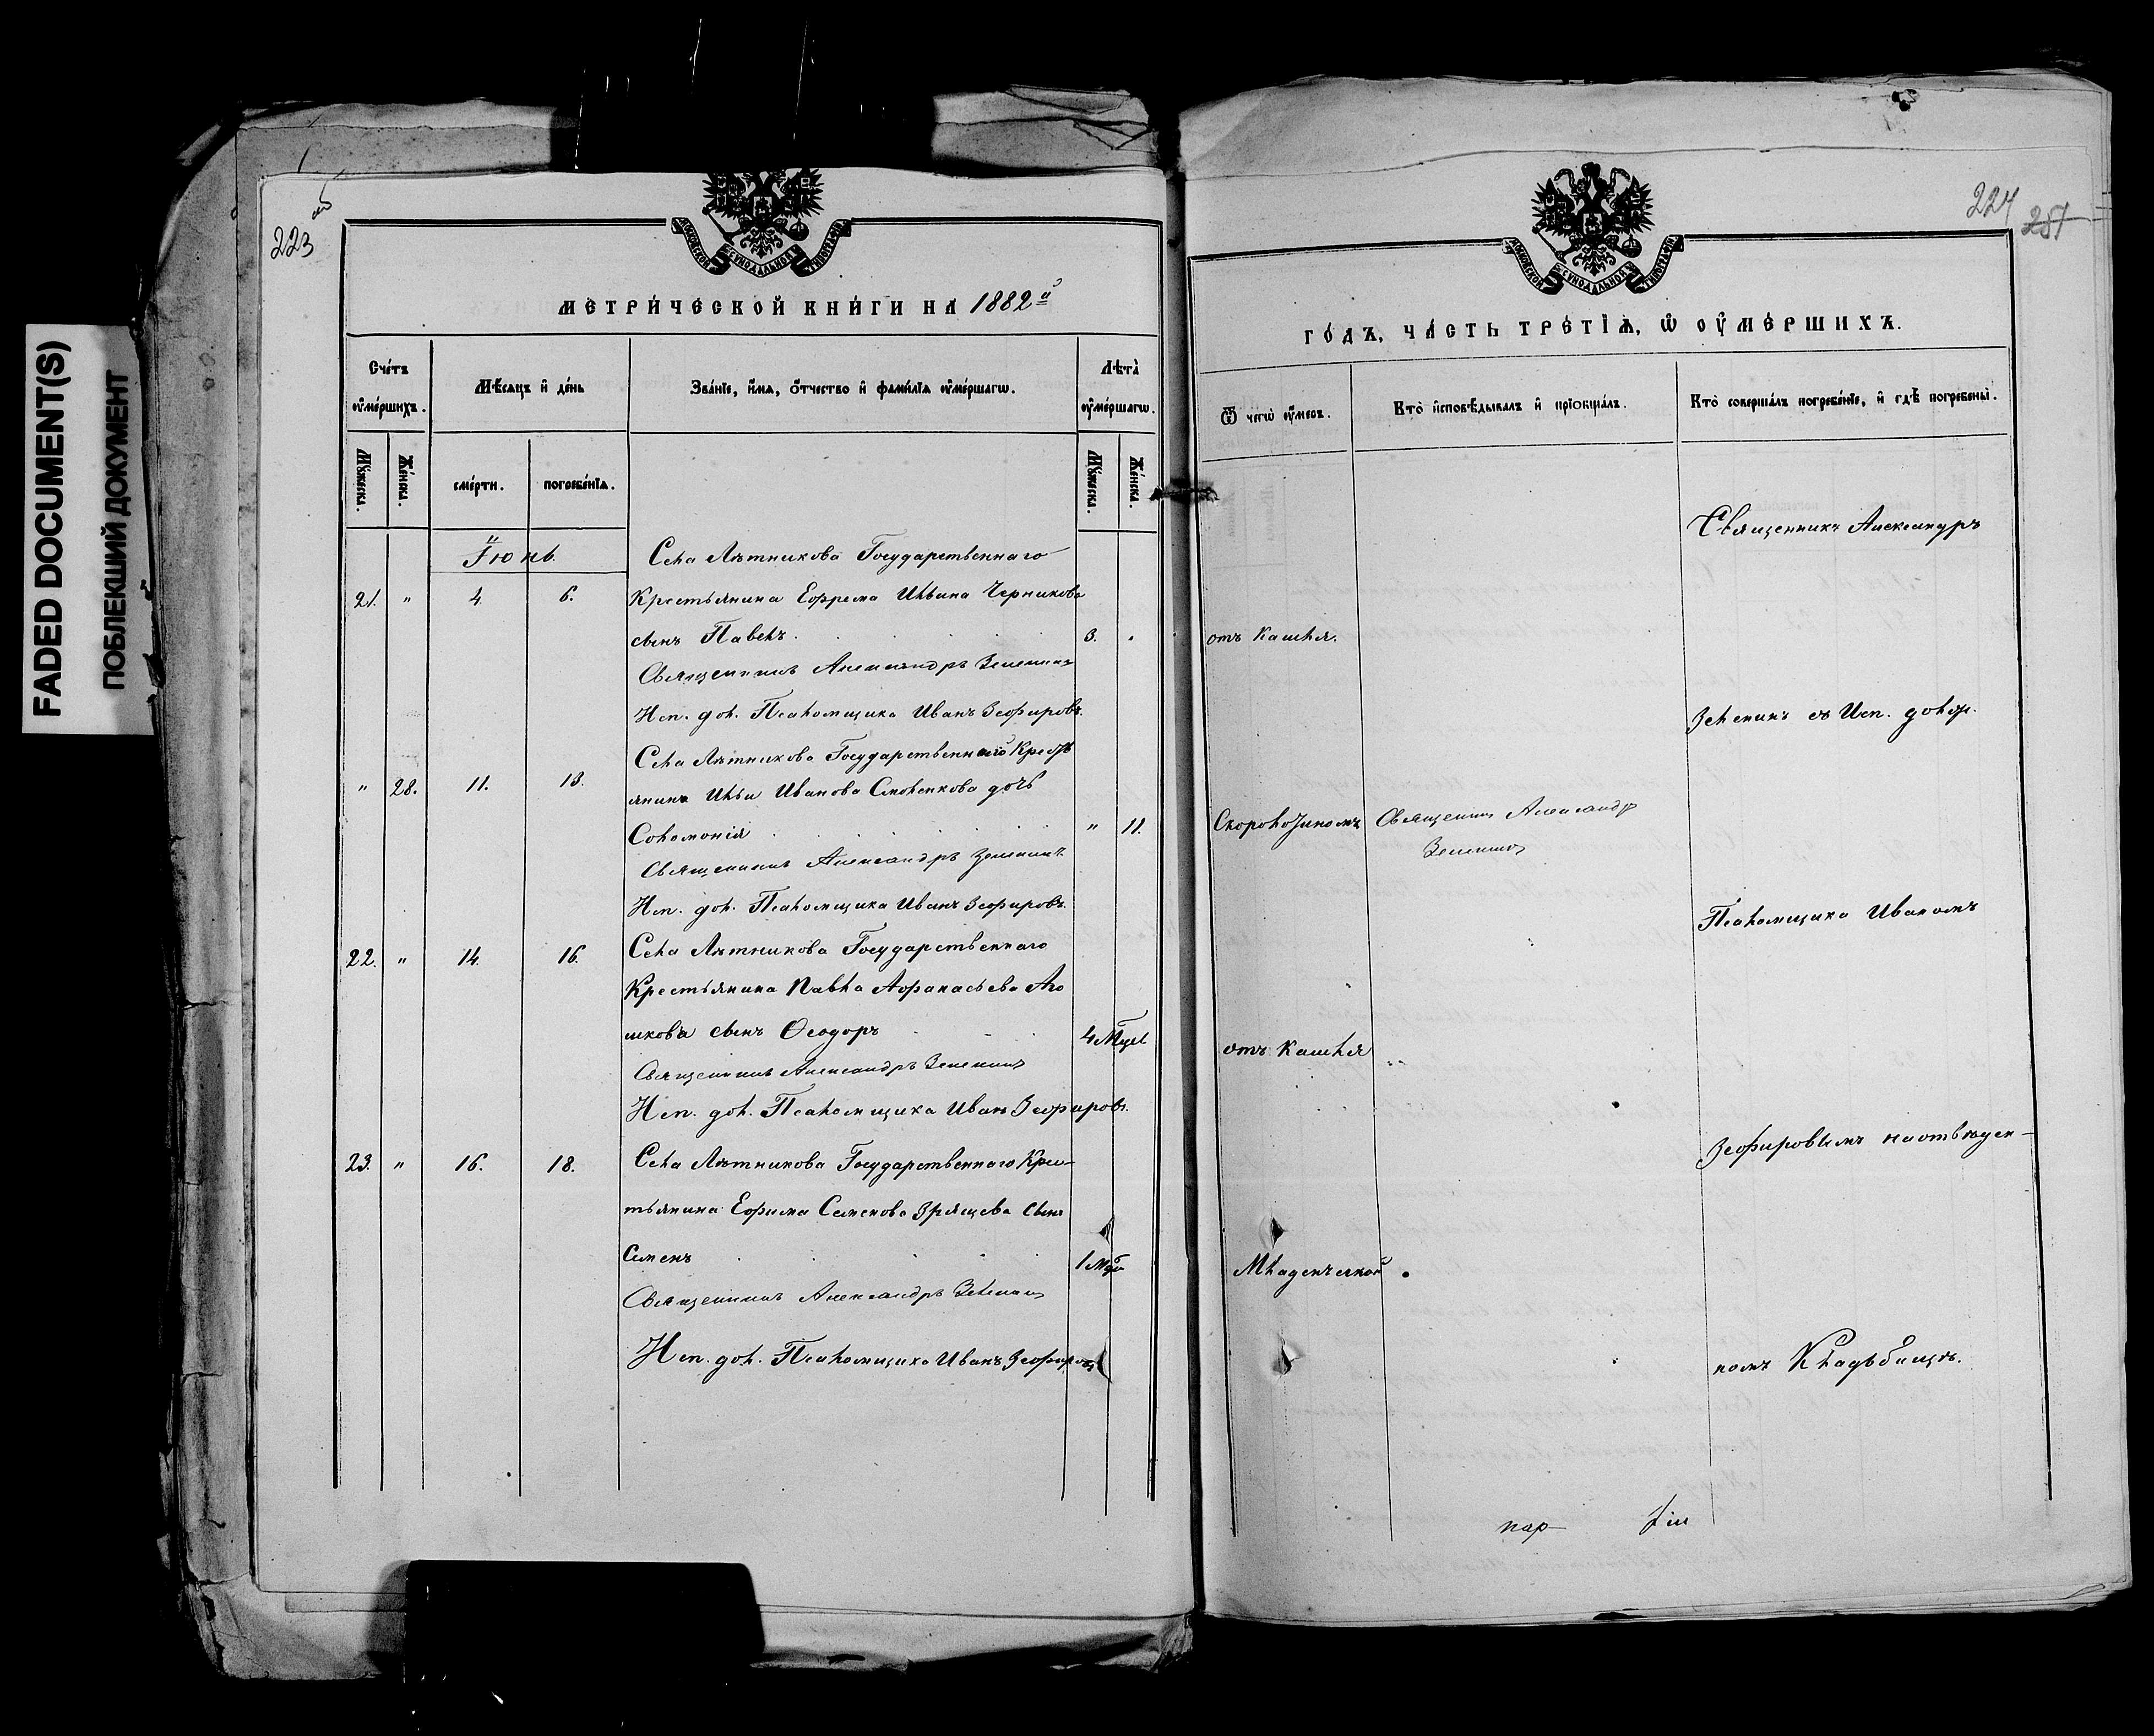 FADED DOCUMENT(S)
ПОБЛЕКШИЙ ДОКУМЕНТ
223 об
МЕТРИ́ЧЕСКОЙ КНИ́ГИ НА 1882й
Сче́тъ ᲂу҆ме́ршихъ.
Мѣ́сяцъ и҆ де́нь
Зва́нїе, и҆́мѧ, ѻ҆́тчество и҆ фами́лїѧ ᲂу҆ме́ршагѡ.
Лѣта̀ ᲂу҆ме́ршагѡ.
Мꙋ́жеска.
Же́нска.
сме́рти.
погребе́нїѧ.
Мꙋ́жеска.
Же́нска.
Іюнь.
Села Лѣтникова Государственнаго
21. " 4 6. Крестьянина Ефрема Ильина Черникова
сынъ Павелъ. 3.
Священникъ Александръ Зеленинъ
Исп. дол. Псаломщика Иванъ Зефировъ.
Села Лѣтникова Государственнаго Кресть
" 28. 11. 13. янина Ильи Иванова Смоленкова дочь
Соломонія " 11.
Священникъ Александръ Зеленинъ
Исп. дол. Псаломщика Иванъ Зефировъ.
22. " 14. 16. Села Лѣтникова Государственнаго
Крестьянина Павла Афанасьева Аго
шкова сынъ Ѳеодоръ 4 Мце
Священникъ Александръ Зеленинъ
Исп. дол. Псаломщика Иванъ Зефировъ.
23. " 16. 18. Села Лѣтникова Государственнаго Крес-
тьянина Ефима Семенова Зрящева сынъ
Семенъ 1
Священникъ Александръ Зеленинъ
Исп. дол. Псаломщика Иванъ Зефировъ
224
251
ГО́ДЪ, ЧА́СТЬ ТРЕ́ТЇѦ, Ѡ҆ ОУ҆МЕ́РШИХЪ.
Ѿ чегѡ̀ ᲂу҆́меръ.
Кто̀ и҆сповѣ́дывалъ и҆ прїобща́лъ.
Кто̀ соверша́лъ погребе́нїе, и҆ гдѣ̀ погребены̀.
Священникъ Александръ
отъ Кашля.
Зеленинъ съ Исп. долж.
Скоропостижно Священникъ Александръ
Зеленинъ
Псаломщика Иваномъ
отъ Кашля
Зефировымъ на отведен-
Младенческой
номъ Кладбищѣ.